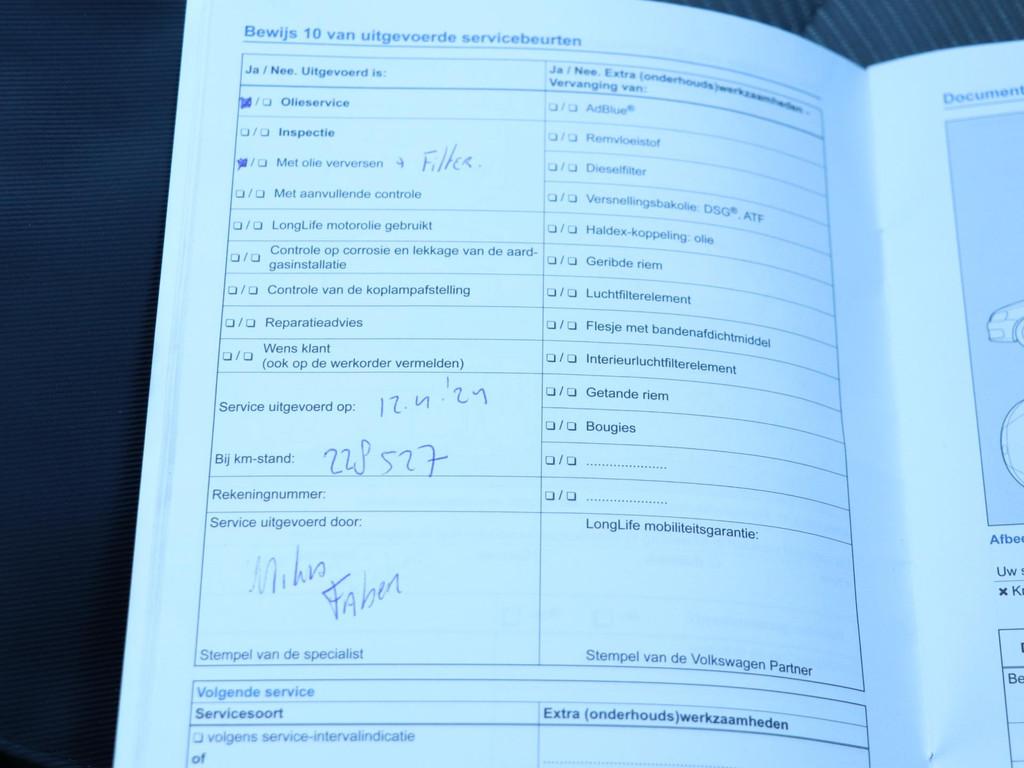 Bewijs 10 van uitgevoerde servicebeurten
Ja / Nee. Uitgevoerd is:
Olieservice
Inspectie
Met olie verversen + Filter.
Met aanvullende controle
LongLife motorolie gebruikt
Controle op corrosie en lekkage van de aard-
gasinstallatie
Controle van de koplampafstelling
Reparatieadvies
Wens klant
(ook op de werkorder vermelden)
Service uitgevoerd op: 12.4.'24
Bij km-stand: 228527
Rekeningnummer:
Service uitgevoerd door:
Faber
Stempel van de specialist
Ja / Nee. Extra (onderhouds)werkzaamheden -
Vervanging van:
AdBlue®
Remvloeistof
Dieselfilter
Versnellingsbakolie: DSG®, ATF
Haldex-koppeling: olie
Geribde riem
Luchtfilterelement
Flesje met bandenafdichtmiddel
Interieurluchtfilterelement
Getande riem
Bougies
LongLife mobiliteitsgarantie:
Stempel van de Volkswagen Partner
Volgende service
Servicesoort
Extra (onderhouds)werkzaamheden
volgens service-intervalindicatie
of
Document
Afbee
Uw s
Be